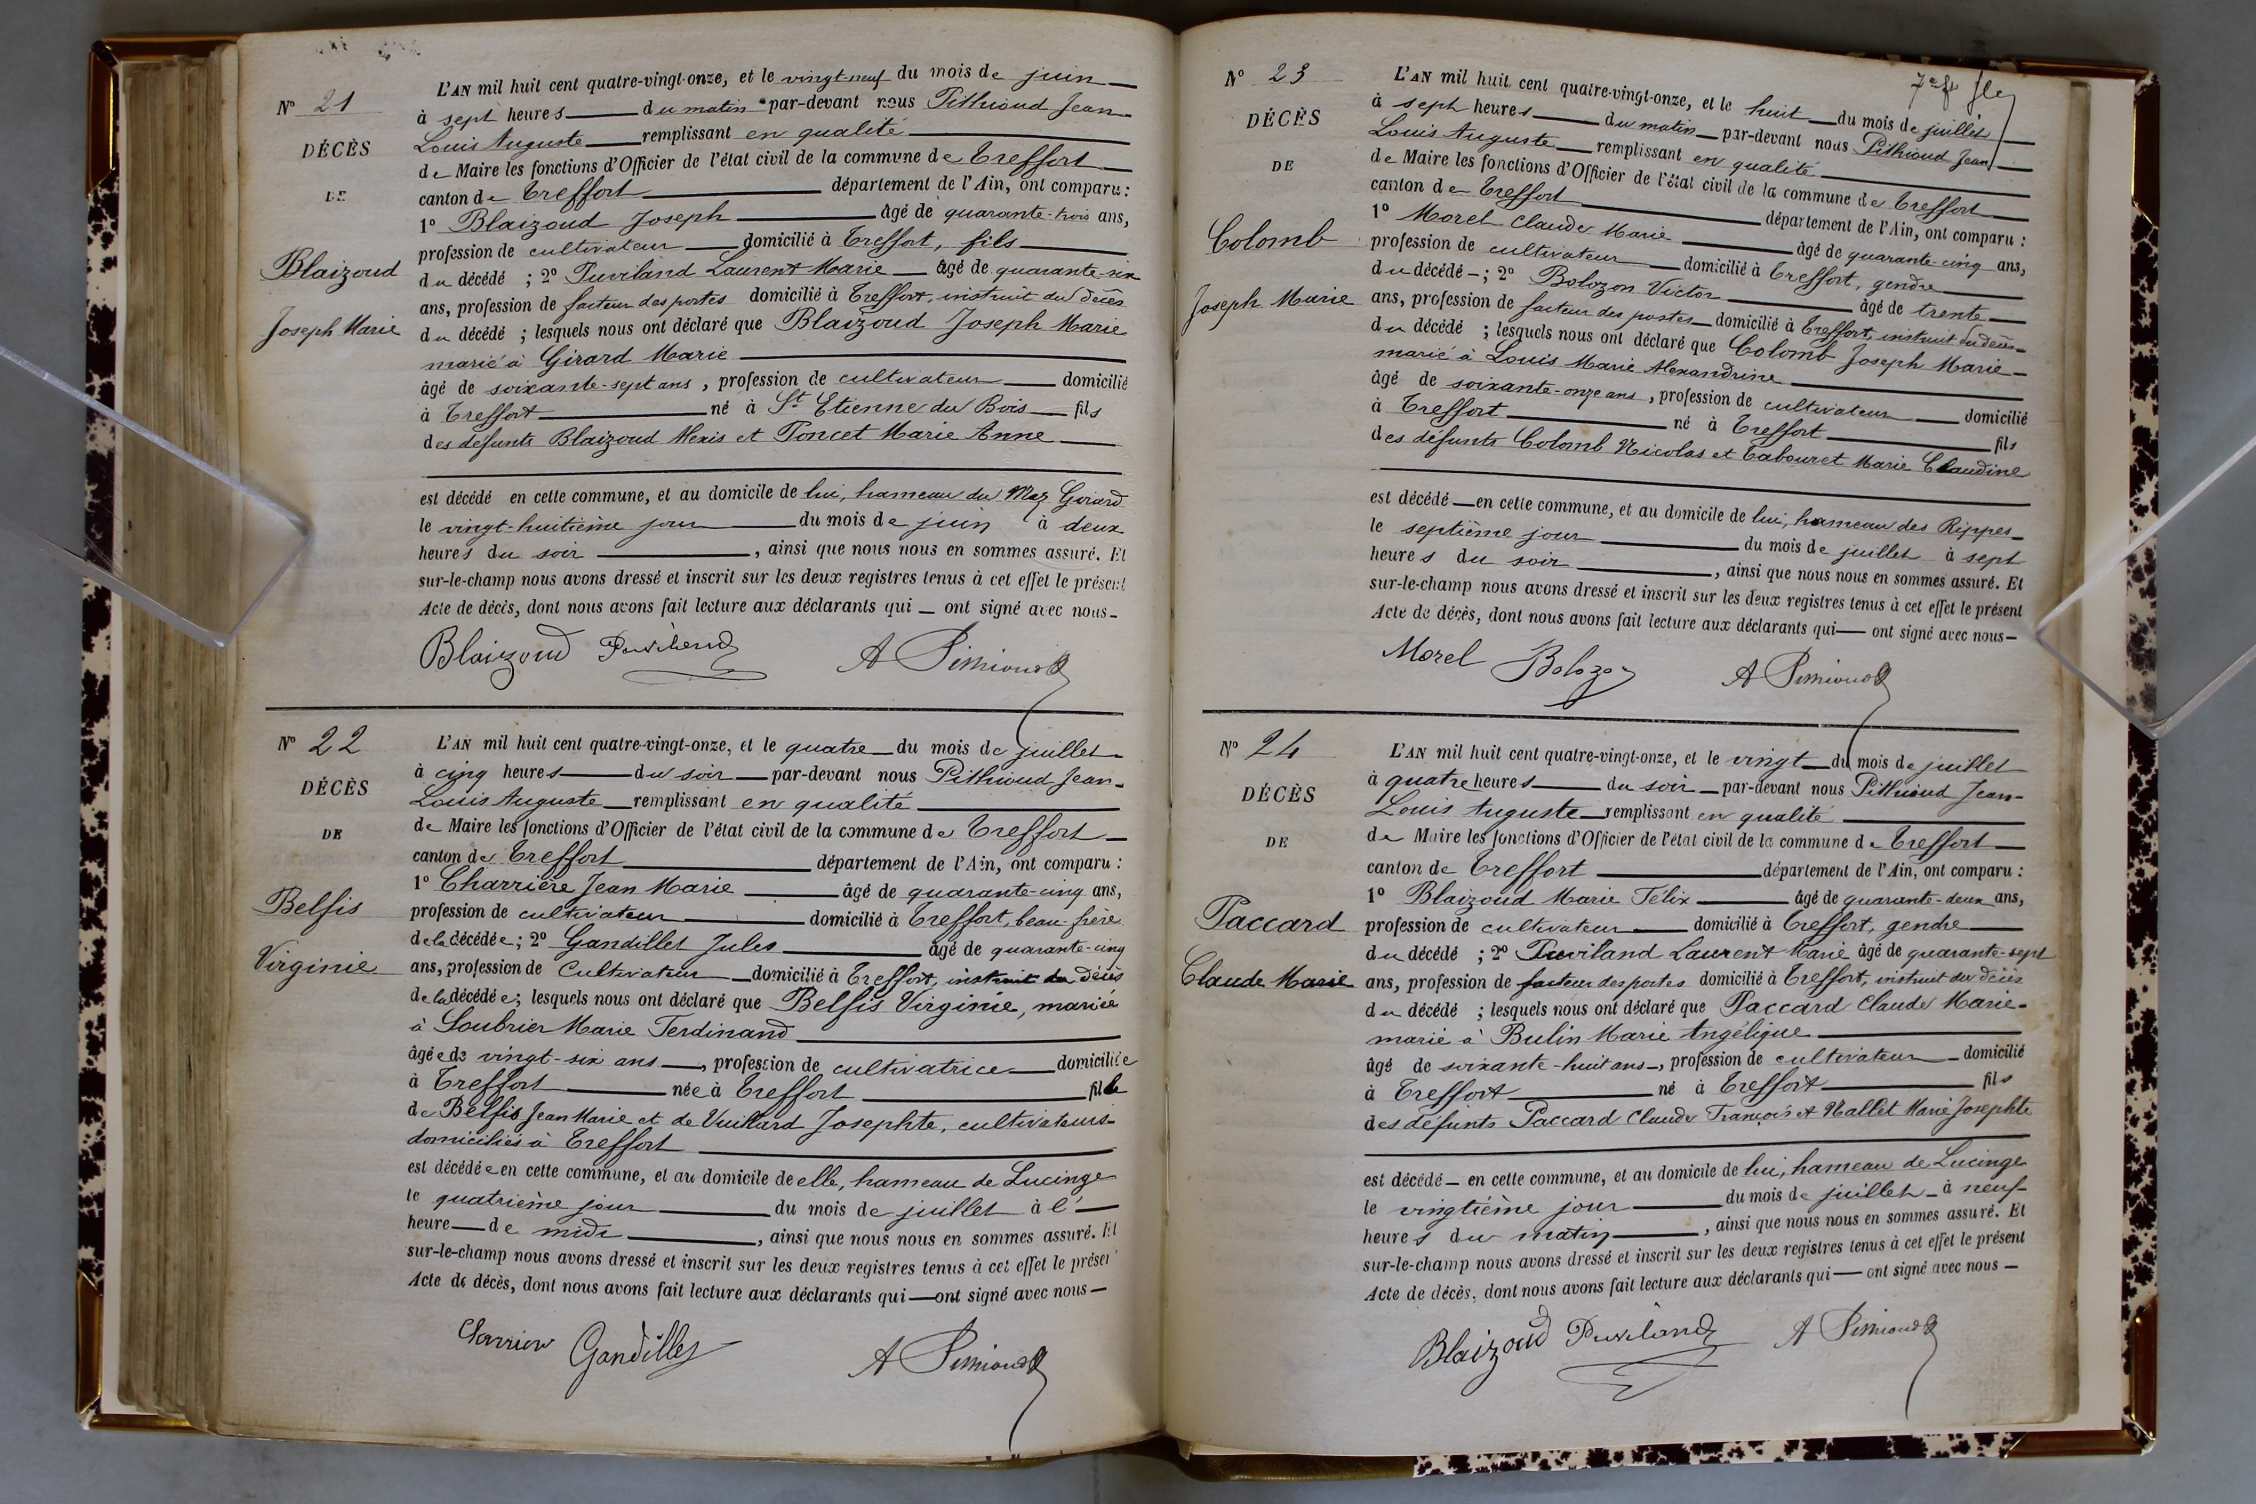 N° 21
DÉCÈS
DE
Blaizoud
Joseph Marie
L'AN mil huit cent quatre-vingt-onze, et le vingt-neuf du mois de juin
à sept heures du matin par-devant nous Pithioud Jean
Louis Auguste remplissant en qualité
de Maire les fonctions d'Officier de l'état civil de la commune de Treffort
canton de Treffort département de l'Ain, ont comparu :
1° Blaizoud Joseph âgé de quarante-trois ans,
profession de cultivateur domicilié à Treffort, fils
du décédé ; 2° Puviland Laurent Marie âgé de quarante-six
ans, profession de facteur des postes domicilié à Treffort, instruit du décès
du décédé ; lesquels nous ont déclaré que Blaizoud Joseph Marie
marié à Girard Marie
âgé de soixante-sept ans, profession de cultivateur domicilié
à Treffort né à St Etienne du Bois fils
des défunts Blaizoud Alexis et Poncet Marie Anne
est décédé en cette commune, et au domicile de lui, hameau du Maz Girard
le vingt-huitième jour du mois de juin à deux
heures du soir, ainsi que nous nous en sommes assuré. Et
sur-le-champ nous avons dressé et inscrit sur les deux registres tenus à cet effet le présent
Acte de décès, dont nous avons fait lecture aux déclarants qui — ont signé avec nous -
Blaizoud Puviland A Pithioud
N° 22
DÉCÈS
DE
Belfis
Virginie
L'AN mil huit cent quatre-vingt-onze, et le quatre du mois de juillet
à cinq heures du soir par-devant nous Pithioud Jean-
Louis Auguste remplissant en qualité
de Maire les fonctions d'Officier de l'état civil de la commune de Treffort
canton de Treffort département de l'Ain, ont comparu :
1° Charrière Jean Marie âgé de quarante-cinq ans,
profession de cultivateur domicilié à Treffort, beau-frère
de la décédée ; 2° Gandillet Jules âgé de quarante-cinq
ans, profession de Cultivateur domicilié à Treffort, instruit du décès
de la décédée ; lesquels nous ont déclaré que Belfis Virginie, mariée
à Soubrier Marie Ferdinand
âgée de vingt-six ans, profession de cultivatrice domiciliée
à Treffort née à Treffort fille
de Belfis Jean Marie et de Vuillard Josephte, cultivateurs
domiciliés à Treffort
est décédée en cette commune, et au domicile de elle, hameau de Lucinge
le quatrième jour du mois de juillet à l'
heure de midi, ainsi que nous nous en sommes assuré. Et
sur-le-champ nous avons dressé et inscrit sur les deux registres tenus à cet effet le présent
Acte de décès, dont nous avons fait lecture aux déclarants qui — ont signé avec nous —
Charrier Gandillet A Pithioud
N° 23
DÉCÈS
DE
Colomb
Joseph Marie
L'AN mil huit cent quatre-vingt-onze, et le huit du mois de juillet
à sept heures du matin par-devant nous Pithioud Jean
Louis Auguste remplissant en qualité
de Maire les fonctions d'Officier de l'état civil de la commune de Treffort
canton de Treffort département de l'Ain, ont comparu :
1° Morel Claude Marie âgé de quarante-cinq ans,
profession de cultivateur domicilié à Treffort, gendre
du décédé - ; 2° Bolozon Victor âgé de trente
ans, profession de facteur des postes domicilié à Treffort, instruit du décès
du décédé ; lesquels nous ont déclaré que Colomb Joseph Marie
marié à Louis Marie Alexandrine
âgé de soixante-onze ans, profession de cultivateur domicilié
à Treffort né à Treffort fils
des défunts Colomb Nicolas et Tabouret Marie Claudine
est décédé en cette commune, et au domicile de lui, hameau des Rippes
le septième jour du mois de juillet à sept
heures du soir, ainsi que nous nous en sommes assuré. Et
sur-le-champ nous avons dressé et inscrit sur les deux registres tenus à cet effet le présent
Acte de décès, dont nous avons fait lecture aux déclarants qui — ont signé avec nous —
Morel Bolozon A Pithioud
N° 24
DÉCÈS
DE
Paccard
Claude Marie
L'AN mil huit cent quatre-vingt-onze, et le vingt du mois de juillet
à quatre heures du soir par-devant nous Pithioud Jean-
Louis Auguste remplissant en qualité
de Maire les fonctions d'Officier de l'état civil de la commune de Treffort
canton de Treffort département de l'Ain, ont comparu :
1° Blaizoud Marie Félix âgé de quarante-deux ans,
profession de cultivateur domicilié à Treffort, gendre
du décédé ; 2° Puviland Laurent Marie âgé de quarante-sept
ans, profession de facteur des postes domicilié à Treffort, instruit du décès
du décédé ; lesquels nous ont déclaré que Paccard Claude Marie-
marié à Bulin Marie Angélique
âgé de soixante-huit ans, profession de cultivateur domicilié
à Treffort né à Treffort fils
des défunts Paccard Claude François et Nallet Marie Josephte
est décédé en cette commune, et au domicile de lui, hameau de Lucinge
le vingtième jour du mois de juillet à neuf
heures du matin, ainsi que nous nous en sommes assuré. Et
sur-le-champ nous avons dressé et inscrit sur les deux registres tenus à cet effet le présent
Acte de décès, dont nous avons fait lecture aux déclarants qui — ont signé avec nous —
Blaizoud Puviland A Pithioud